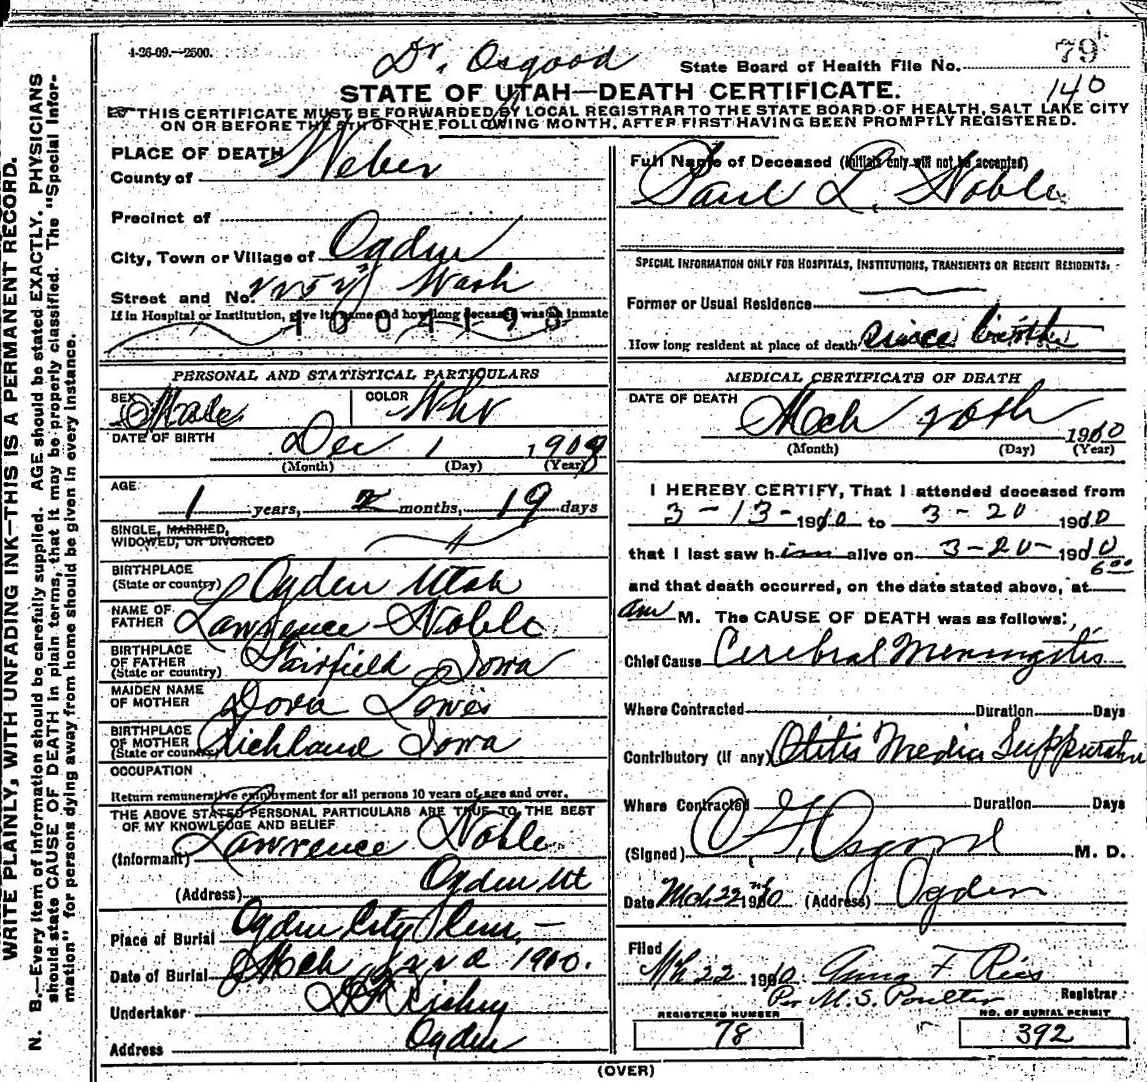 4-26-09.—2500.
Dr. Osgood
State Board of Health File No. 79
140
STATE OF UTAH—DEATH CERTIFICATE.
THIS CERTIFICATE MUST BE FORWARDED BY LOCAL REGISTRAR TO THE STATE BOARD OF HEALTH, SALT LAKE CITY
ON OR BEFORE THE 5TH OF THE FOLLOWING MONTH, AFTER FIRST HAVING BEEN PROMPTLY REGISTERED.
WRITE PLAINLY, WITH UNFADING INK—THIS IS A PERMANENT RECORD.
N. B.—Every item of information should be carefully supplied. AGE should be stated EXACTLY. PHYSICIANS
should state CAUSE OF DEATH in plain terms, that it may be properly classified. The "Special Infor-
mation" for persons dying away from home should be given in every instance.
PLACE OF DEATH
County of Weber
Precinct of
City, Town or Village of Ogden
Street and No. Wash
If in Hospital or Institution, give its name and how long deceased was an inmate
1004193
PERSONAL AND STATISTICAL PARTICULARS
SEX Male COLOR Whi
DATE OF BIRTH Dec 1 1908
(Month) (Day) (Year)
AGE 1 years, 2 months, 19 days
SINGLE, MARRIED,
WIDOWED, OR DIVORCED
BIRTHPLACE
(State or country) Ogden Utah
NAME OF
FATHER Lawrence Noble
BIRTHPLACE
OF FATHER
(State or country) Fairfield Iowa
MAIDEN NAME
OF MOTHER Dora Lewis
BIRTHPLACE
OF MOTHER
(State or country) Richland Iowa
OCCUPATION
Return remunerative employment for all persons 10 years of age and over.
THE ABOVE STATED PERSONAL PARTICULARS ARE TRUE TO THE BEST
OF MY KNOWLEDGE AND BELIEF
(Informant) Lawrence Noble
(Address) Ogden Ut
Place of Burial Ogden City Cem.
Date of Burial Mch 22nd 1910.
Undertaker Richey
Address Ogden
Full Name of Deceased (Initials only will not be accepted)
Paul L. Noble
SPECIAL INFORMATION ONLY FOR HOSPITALS, INSTITUTIONS, TRANSIENTS OR RECENT RESIDENTS.
Former or Usual Residence
How long resident at place of death since birth
MEDICAL CERTIFICATE OF DEATH
DATE OF DEATH Mch 20th 1910
(Month) (Day) (Year)
I HEREBY CERTIFY, That I attended deceased from
3-13-1910 to 3-20 1910
that I last saw him alive on 3-20-1910
and that death occurred, on the date stated above, at 6 00
am M. The CAUSE OF DEATH was as follows:
Chief Cause Cerebral Meningitis
Where Contracted Duration Days
Contributory (if any) Otitis Media Suppurative
Where Contracted Duration Days
(Signed) Osgood M. D.
Date Mch 22nd 1910 (Address) Ogden
Filed
Mch 22 1910 Anna F Ries
Per M.S. Poulter Registrar
REGISTERED NUMBER NO. OF BURIAL PERMIT
78 392
(OVER)